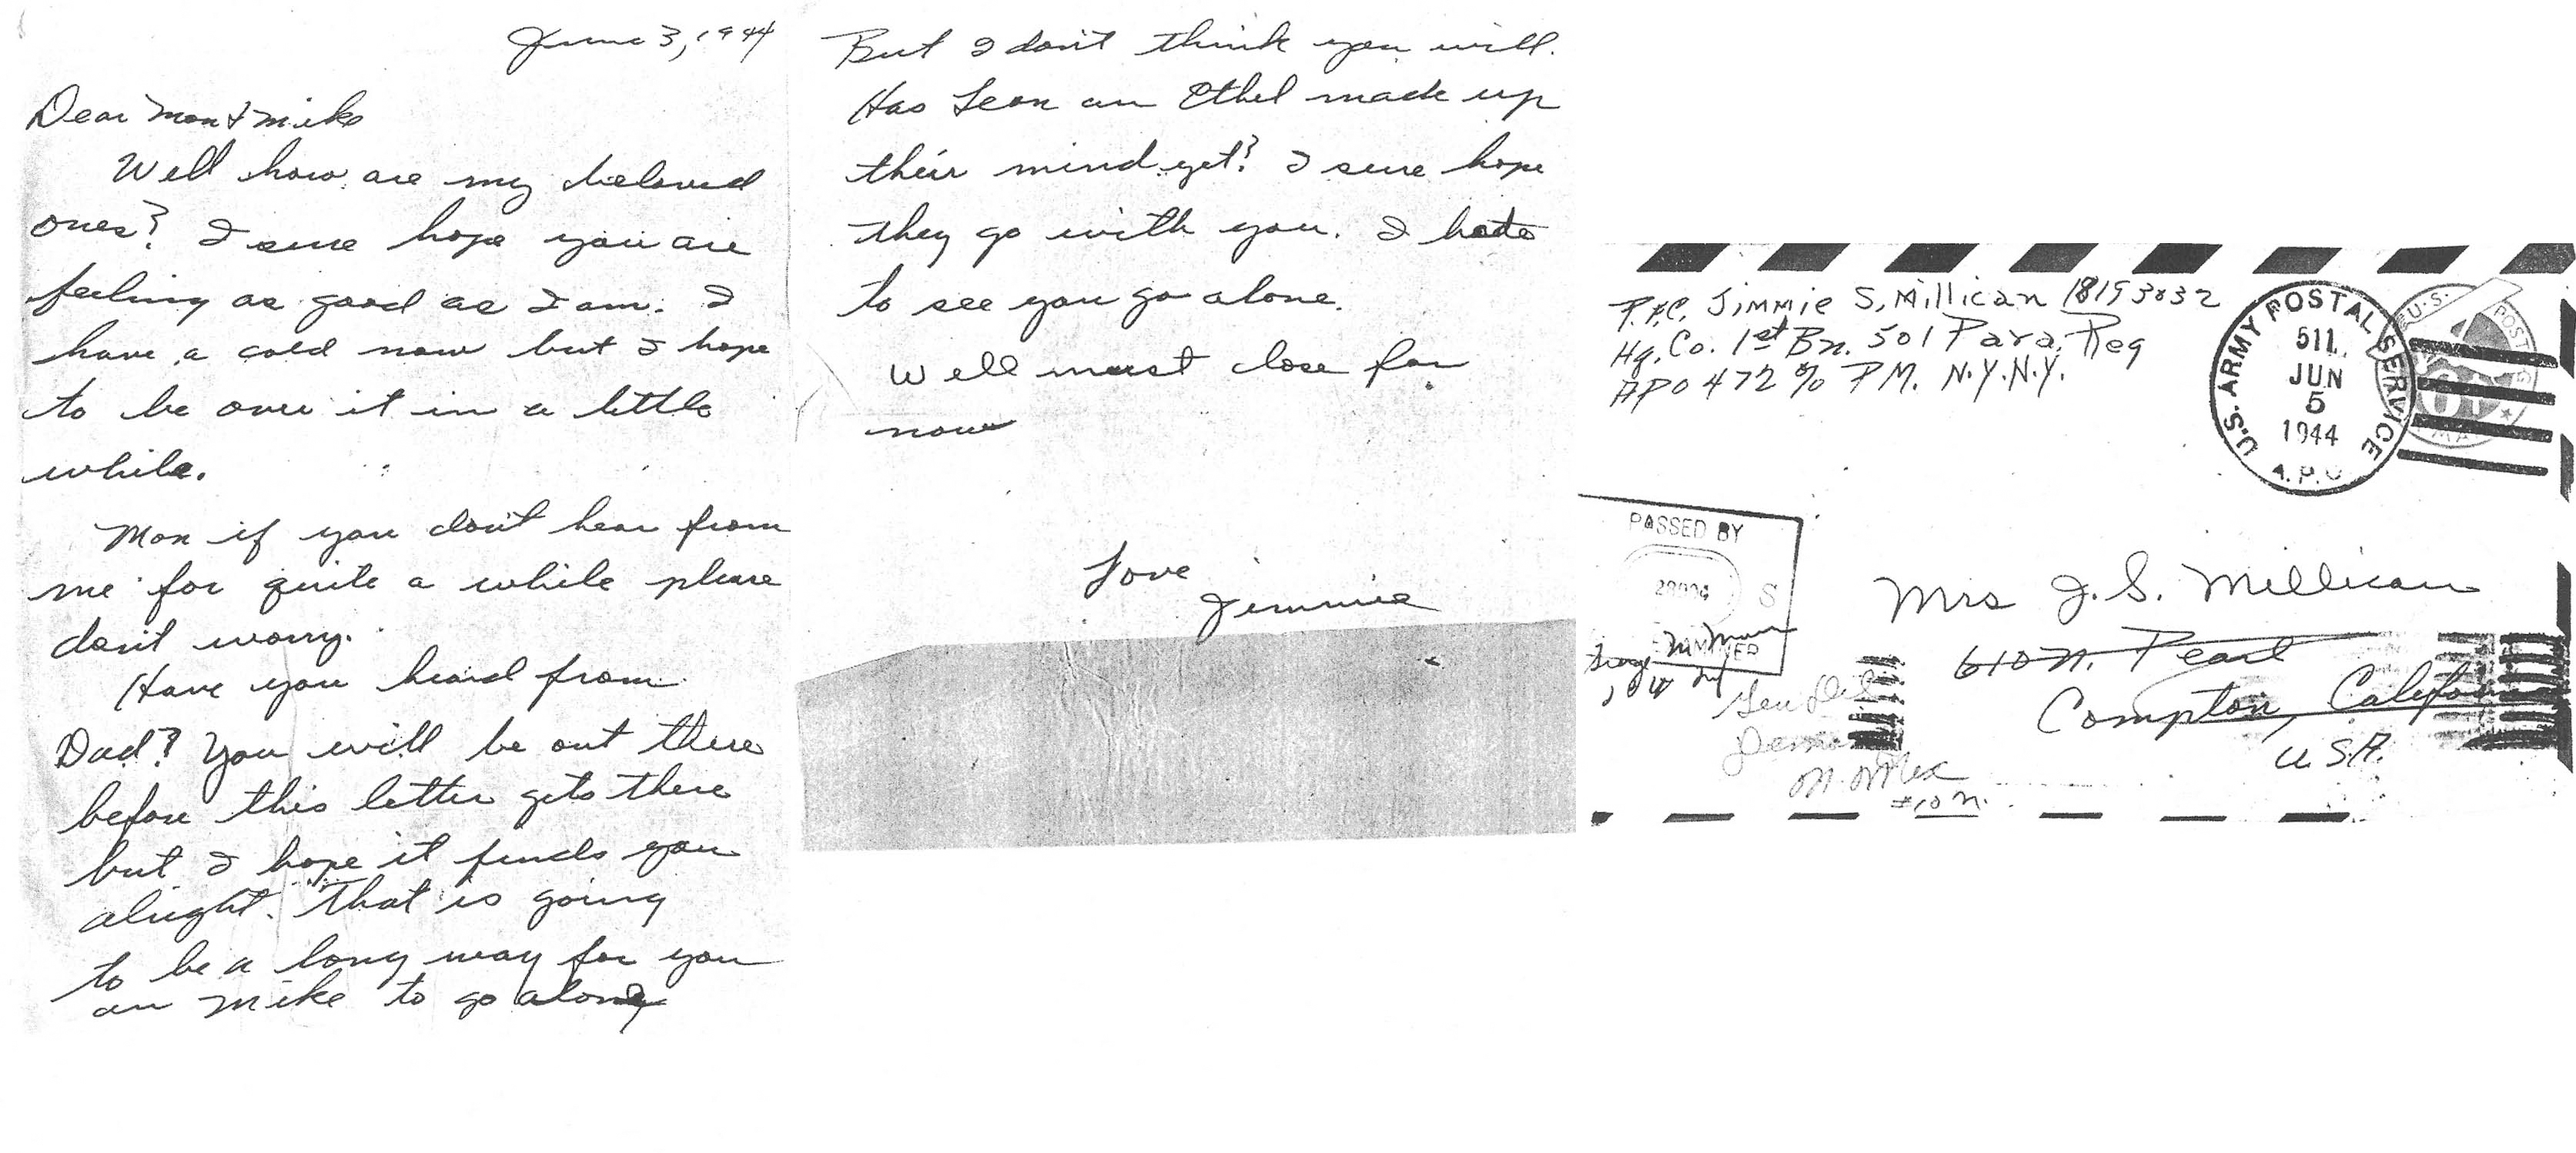 June 3, 1944
Dear Mom & Mike
Well how are my beloved
ones? I sure hope you are
feeling as good as I am. I
have a cold now but I hope
to be over it in a little
while.
Mom if you don't hear from
me for quite a while please
don't worry.
Have you heard from
Dad? You will be out there
before this letter gets there
but I hope it finds you
alright. That is going
to be a long way for you
an Mike to go alone
But I don't think you will.
Has Leon an Ethel made up
their mind yet? I sure hope
they go with you. I hate
to see you go alone.
Well must close for
now
Love
Jimmie
P.F.C. Jimmie S. Millican 18193032
Hq. Co. 1st Bn. 501 Para. Reg
APO 472 % P.M. N.Y.N.Y.
U.S. ARMY POSTAL SERVICE
511
JUN
5
1944
A.P.O
U.S. POSTAGE
PASSED BY
S
EXAMINER
Mrs J. S. Millican
610 N. Pearl
Compton, Califor
U.S.A.
Gen Del
N. Mex